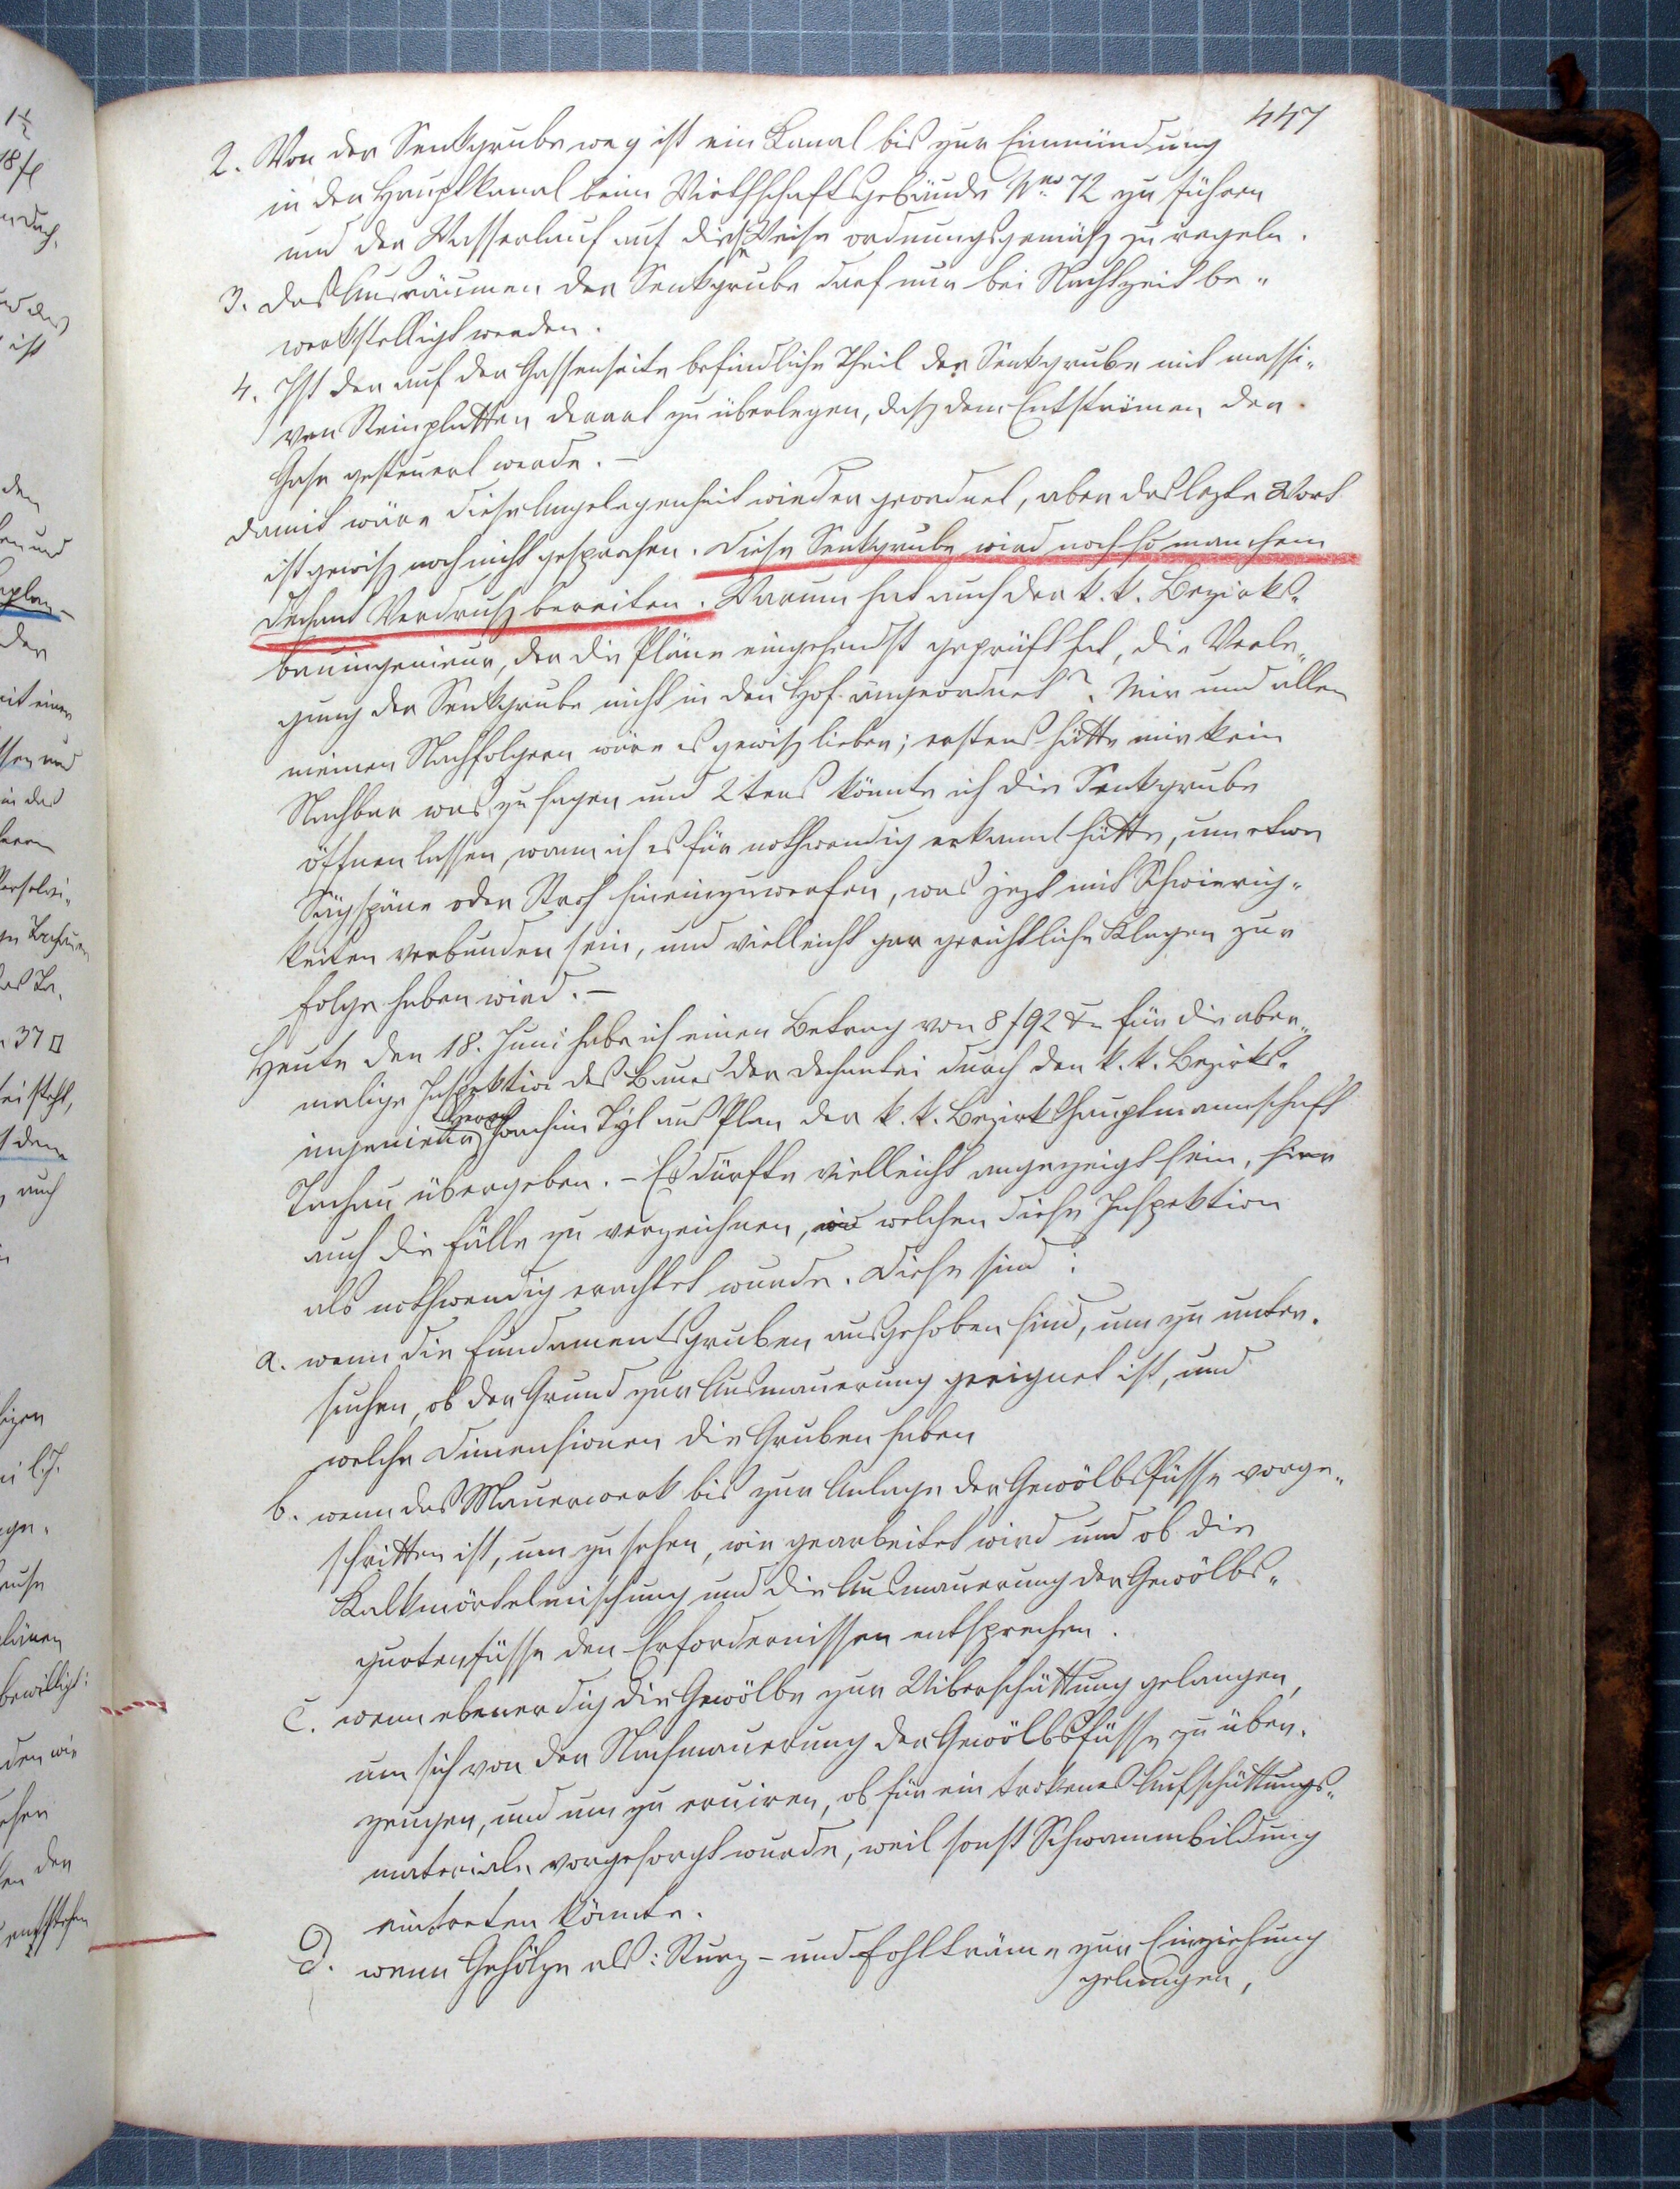 447
2. Von der Senkgrube weg ist ein Kanal bis zur Einmündung
in den Hauptkanal beim Wirthschaftsgebäude Nro 72 zu führen
und der Wasserlauf auf diese Weise ordnungsgemäß zu regeln.
3. Das Ausräumen der Senkgrube darf nur bei Nachtzeit be-
werkstelligt werden.
4. Ist der auf der Gassenseite befindliche Theil der Senkgrube mit massi-
ven Steinplatten derart zu überlegen, daß dem Entströmen der
Gase gesteuert werde. –
Damit wäre diese Angelegenheit wieder geordnet, aber das lezte Wort
ist gewiß noch nicht gesprochen. Diese Senkgrube wird noch so manchem
Dechant Verdruß bereiten. Warum hat auch der k. k. Bezirks-
bauingenieur, der die Pläne eingehendst geprüft hat, die Verle-
gung der Senkgrube nicht in den Hof angeordnet? Mir und allen
meinen Nachfolgern wäre es gewiß lieber; erstens hätte mir kein
Nachbar was zu sagen und 2tens könnte ich die Senkgrube
öffnen lassen, wann ich es für nothwendig erkannt hätte, um etwa
Sägspäne oder Stroh hineinzuwerfen, was jezt mit Schwierig-
keiten verbunden sein, und vielleicht gar gerichtliche Klagen zur
Folge haben wird. –
Heute den 18. Juni habe ich einen Betrag von 8 f 92 kr für die aber-
malige Inspektion des Baues der Dechantei durch den k. k. Bezirks-
ingenieur Herrn Joachim Tyl aus Plan der k. k. Bezirkshauptmannschaft
Tachau übergeben. – Es dürfte vielleicht angezeigt sein, hier
auch die Fälle zu verzeichnen, in welchen diese Inspektion
als nothwendig erachtet wurde. Diese sind:
a. wenn die Fundamentsgruben ausgehoben sind, um zu unter-
suchen, ob der Grund zur Ausmauerung geeignet ist, und
welche Dimensionen die Gruben haben
b. wenn das Mauerwerk bis zur Anlage der Gewölbsfüsse vorge-
schritten ist, um zu sehen, wie gearbeitet wird und ob die
Kalkmörtelmischung und die Ausmauerung der Gewölbs-
gurtenfüsse den Erfordernissen entsprechen.
c. wenn ebenerdig die Gewölbe zur Uiberschüttung gelangen,
um sich von der Nachmauerung der Gewölbsfüsse zu über-
zeugen, und um zu eruiren, ob für ein trokenes Aufschüttungs-
materiale vorgesorgt wurde, weil sonst Schwammbildung
eintreten könnte.
d. wenn Gehölze als: Sturz- und Fohlträme zur Einziehung
gelangen,